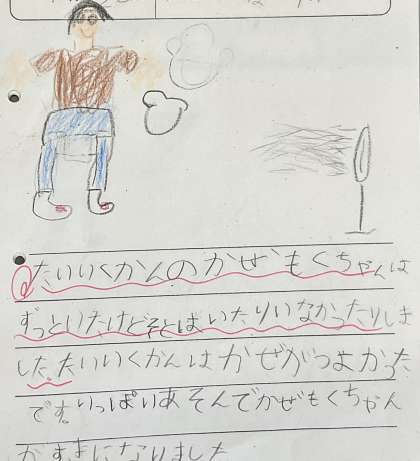 たいいくかんのかぜもくちゃんは
ずっといたけどそとはいたりいなかったりしま
した。たいいくかんはかぜがつよかった
です。いっぱいあそんでかぜもくちゃん
がすきになりました